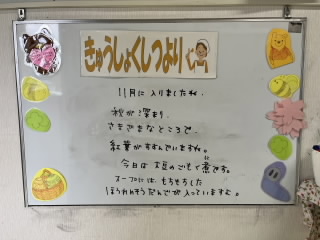 きゅうしょくしつより
11月に入りましたね。
秋が深まり、
さまざまなところで、
紅葉がすすんでいますね。
今日は大豆のごもく煮です。
スープには、もちもちした
ほうれんそうだんごが入っていますよ。